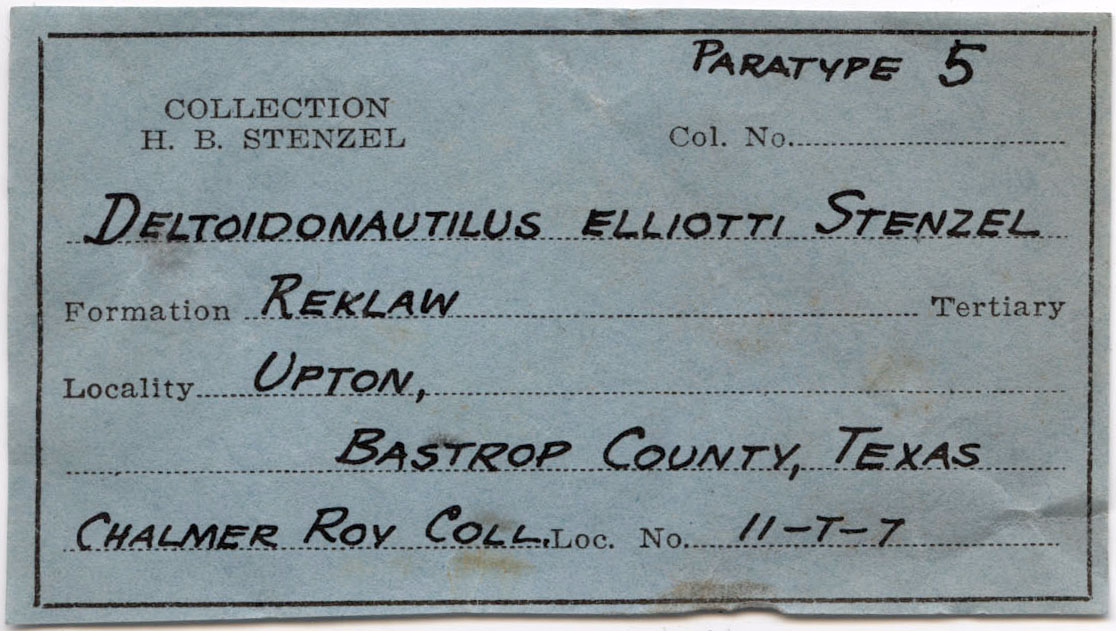 PARATYPE 5
COLLECTION
H. B. STENZEL
Col. No.
DELTOIDONAUTILUS ELLIOTTI STENZEL
Formation REKLAW Tertiary
Locality UPTON,
BASTROP COUNTY, TEXAS
CHALMER ROY COLL. Loc. No. 11-T-7